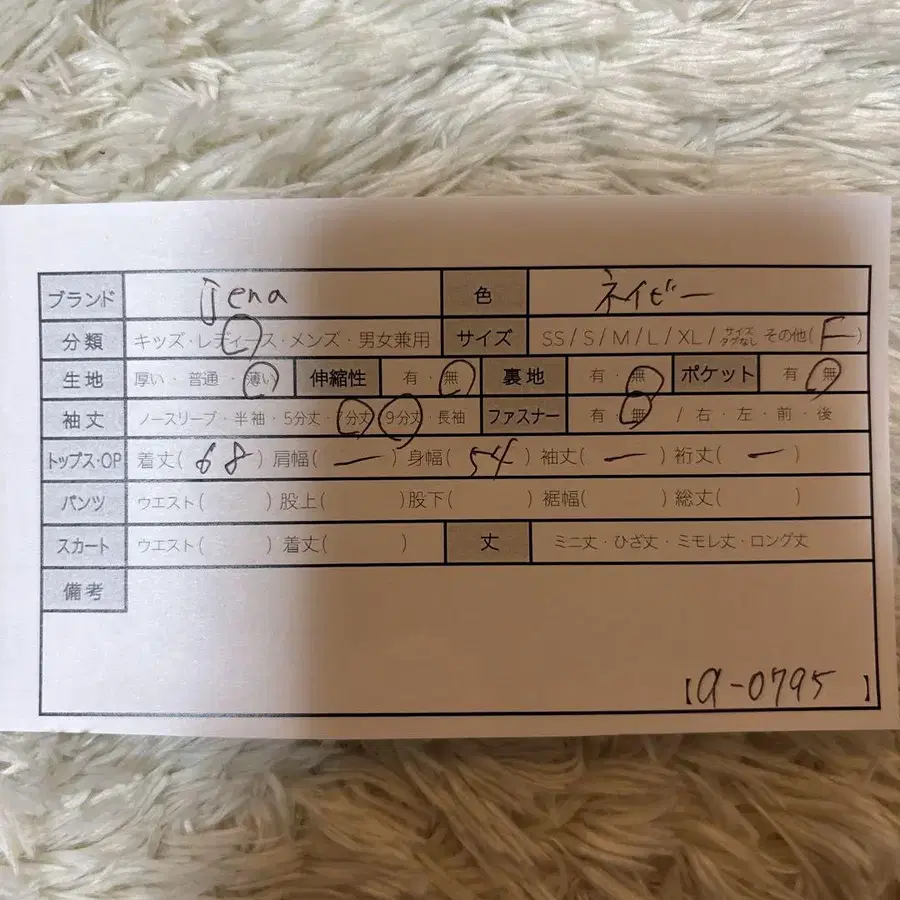 ブランド jena 色 ネイビー
分類 キッズ・レディース・メンズ・男女兼用 サイズ SS/S/M/L/XL/サイズタグなし その他(F)
生地 厚い・普通・薄い 伸縮性 有・無 裏地 有・無 ポケット 有・無
袖丈 ノースリーブ・半袖・5分丈・7分丈・9分丈・長袖 ファスナー 有・無 /右・左・前・後
トップス・OP 着丈(68) 肩幅(ー) 身幅(54) 袖丈(ー) 裄丈(ー)
パンツ ウエスト( ) 股上( ) 股下( ) 裾幅( ) 総丈( )
スカート ウエスト( ) 着丈( ) 丈 ミニ丈・ひざ丈・ミモレ丈・ロング丈
備考
【a-0795】